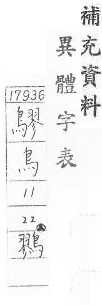 補充資料
異體字表
17936
鳥
11
22
鷚